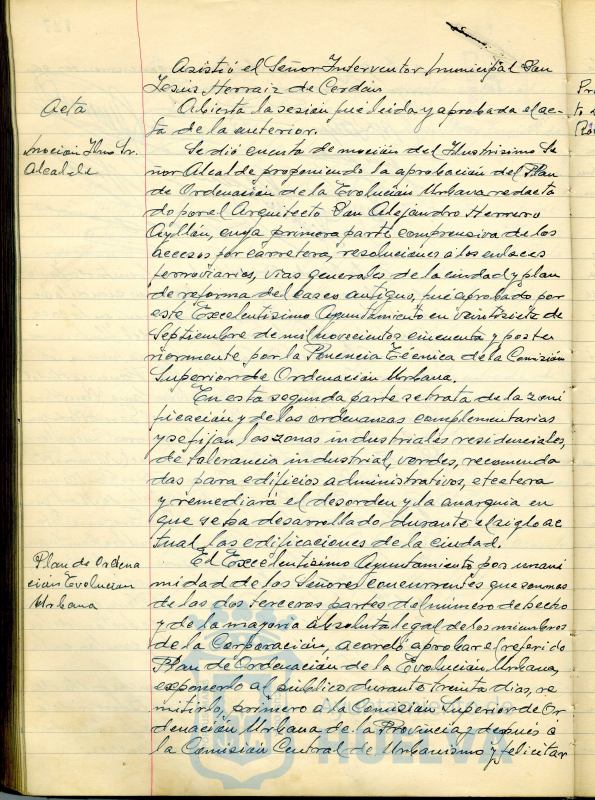 Asistió el Señor Interventor municipal Don
Jesús Herraiz de Cerdán
Acta
Abierta la sesión fué leida y aprobada el ac-
ta de la anterior.
moción Ilmo Sr.
Alcalde
Se dió cuenta de moción del Ilustrísimo Se
ñor Alcalde proponiendo la aprobación del Plan
de Ordenación de la Evolución Urbana redacta
do por el Arquitecto Don Alejandro Herrero
Ayllón, cuya primera parte comprensiva de los
accesos por carretera, resoluciones a los enlaces
ferroviarios, vias generales de la ciudad y plan
de reforma del casco antiguo, fué aprobado por
este Excelentísimo Ayuntamiento en veintisiete de
Septiembre de mil novecientos cincuenta y poste
riormente por la Ponencia Técnica de la Comisión
Superior de Ordenación Urbana.
En esta segunda parte se trata de la zoni
ficación y de las ordenanzas complementarias
y se fijan las zonas industriales residenciales,
de tolerancia industrial, verdes, recomenda
das para edificios administrativos, etcetera
y remediará el desorden y la anarquia en
que se ha desarrollado durante el siglo ac
tual las edificaciones de la ciudad.
Plan de Ordena
ción Evolución
Urbana
El Excelentísimo Ayuntamiento por unani
midad de los Señores concurrentes que son mas
de las dos terceras partes del número de hecho
y de la mayoría absoluta legal de los miembros
de la Corporación, acordó aprobar el referido
Plan de Ordenación de la Evolución Urbana,
exponerlo al público durante treinta dias, re
mitirlo, primero a la Comisión Superior de Or
denación Urbana de la Provincia y después a
la Comisión Central de Urbanismo y felicitar
HUELVA